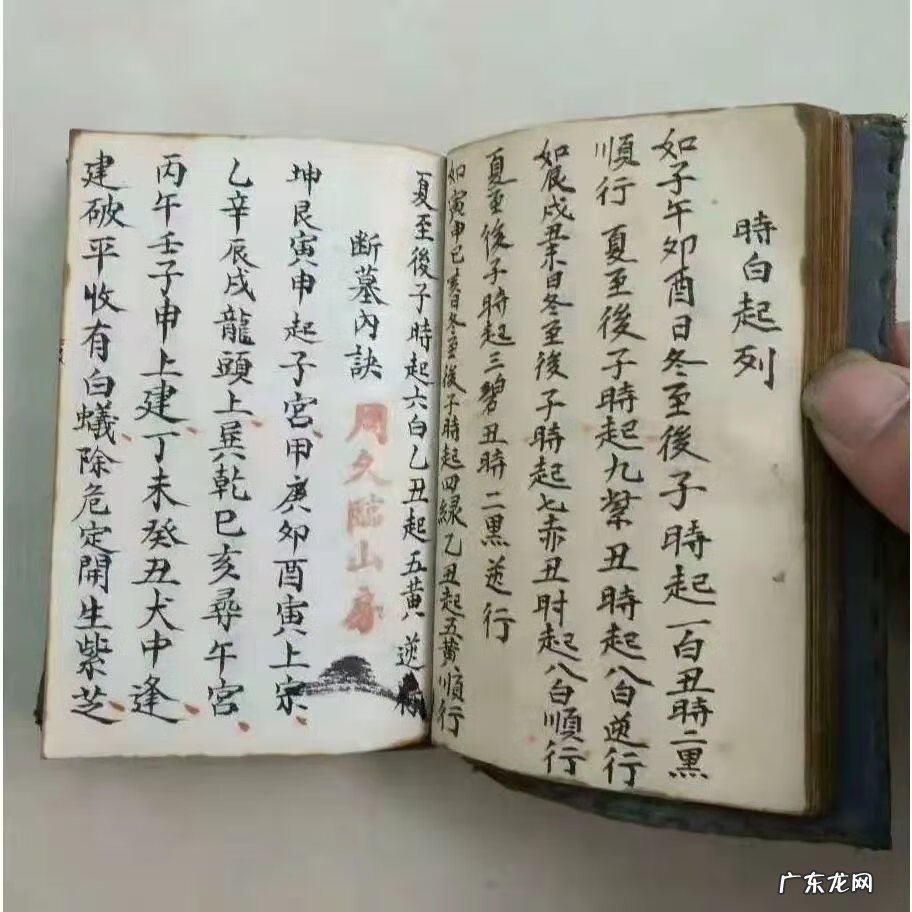 時白起列
如子午卯酉日冬至後子時起一白丑時二黑
順行 夏至後子時起九紫丑時起八白逆行
如辰戌丑未日冬至後子時起七赤丑时起八白順行
夏至後子時起三碧丑時二黑逆行
如寅申巳亥日冬至後子時起四緑乙丑起五黄順行
夏至後子時起六白乙丑起五黄逆
断墓內訣
周久臨山
坤艮寅申起子宮甲庚卯酉寅上宗
乙辛辰戌龍頭上巽乾巳亥尋午宮
丙午壬子申上建丁未癸丑犬中逢
建破平收有白蟻除危定開生紫芝
广东龙网